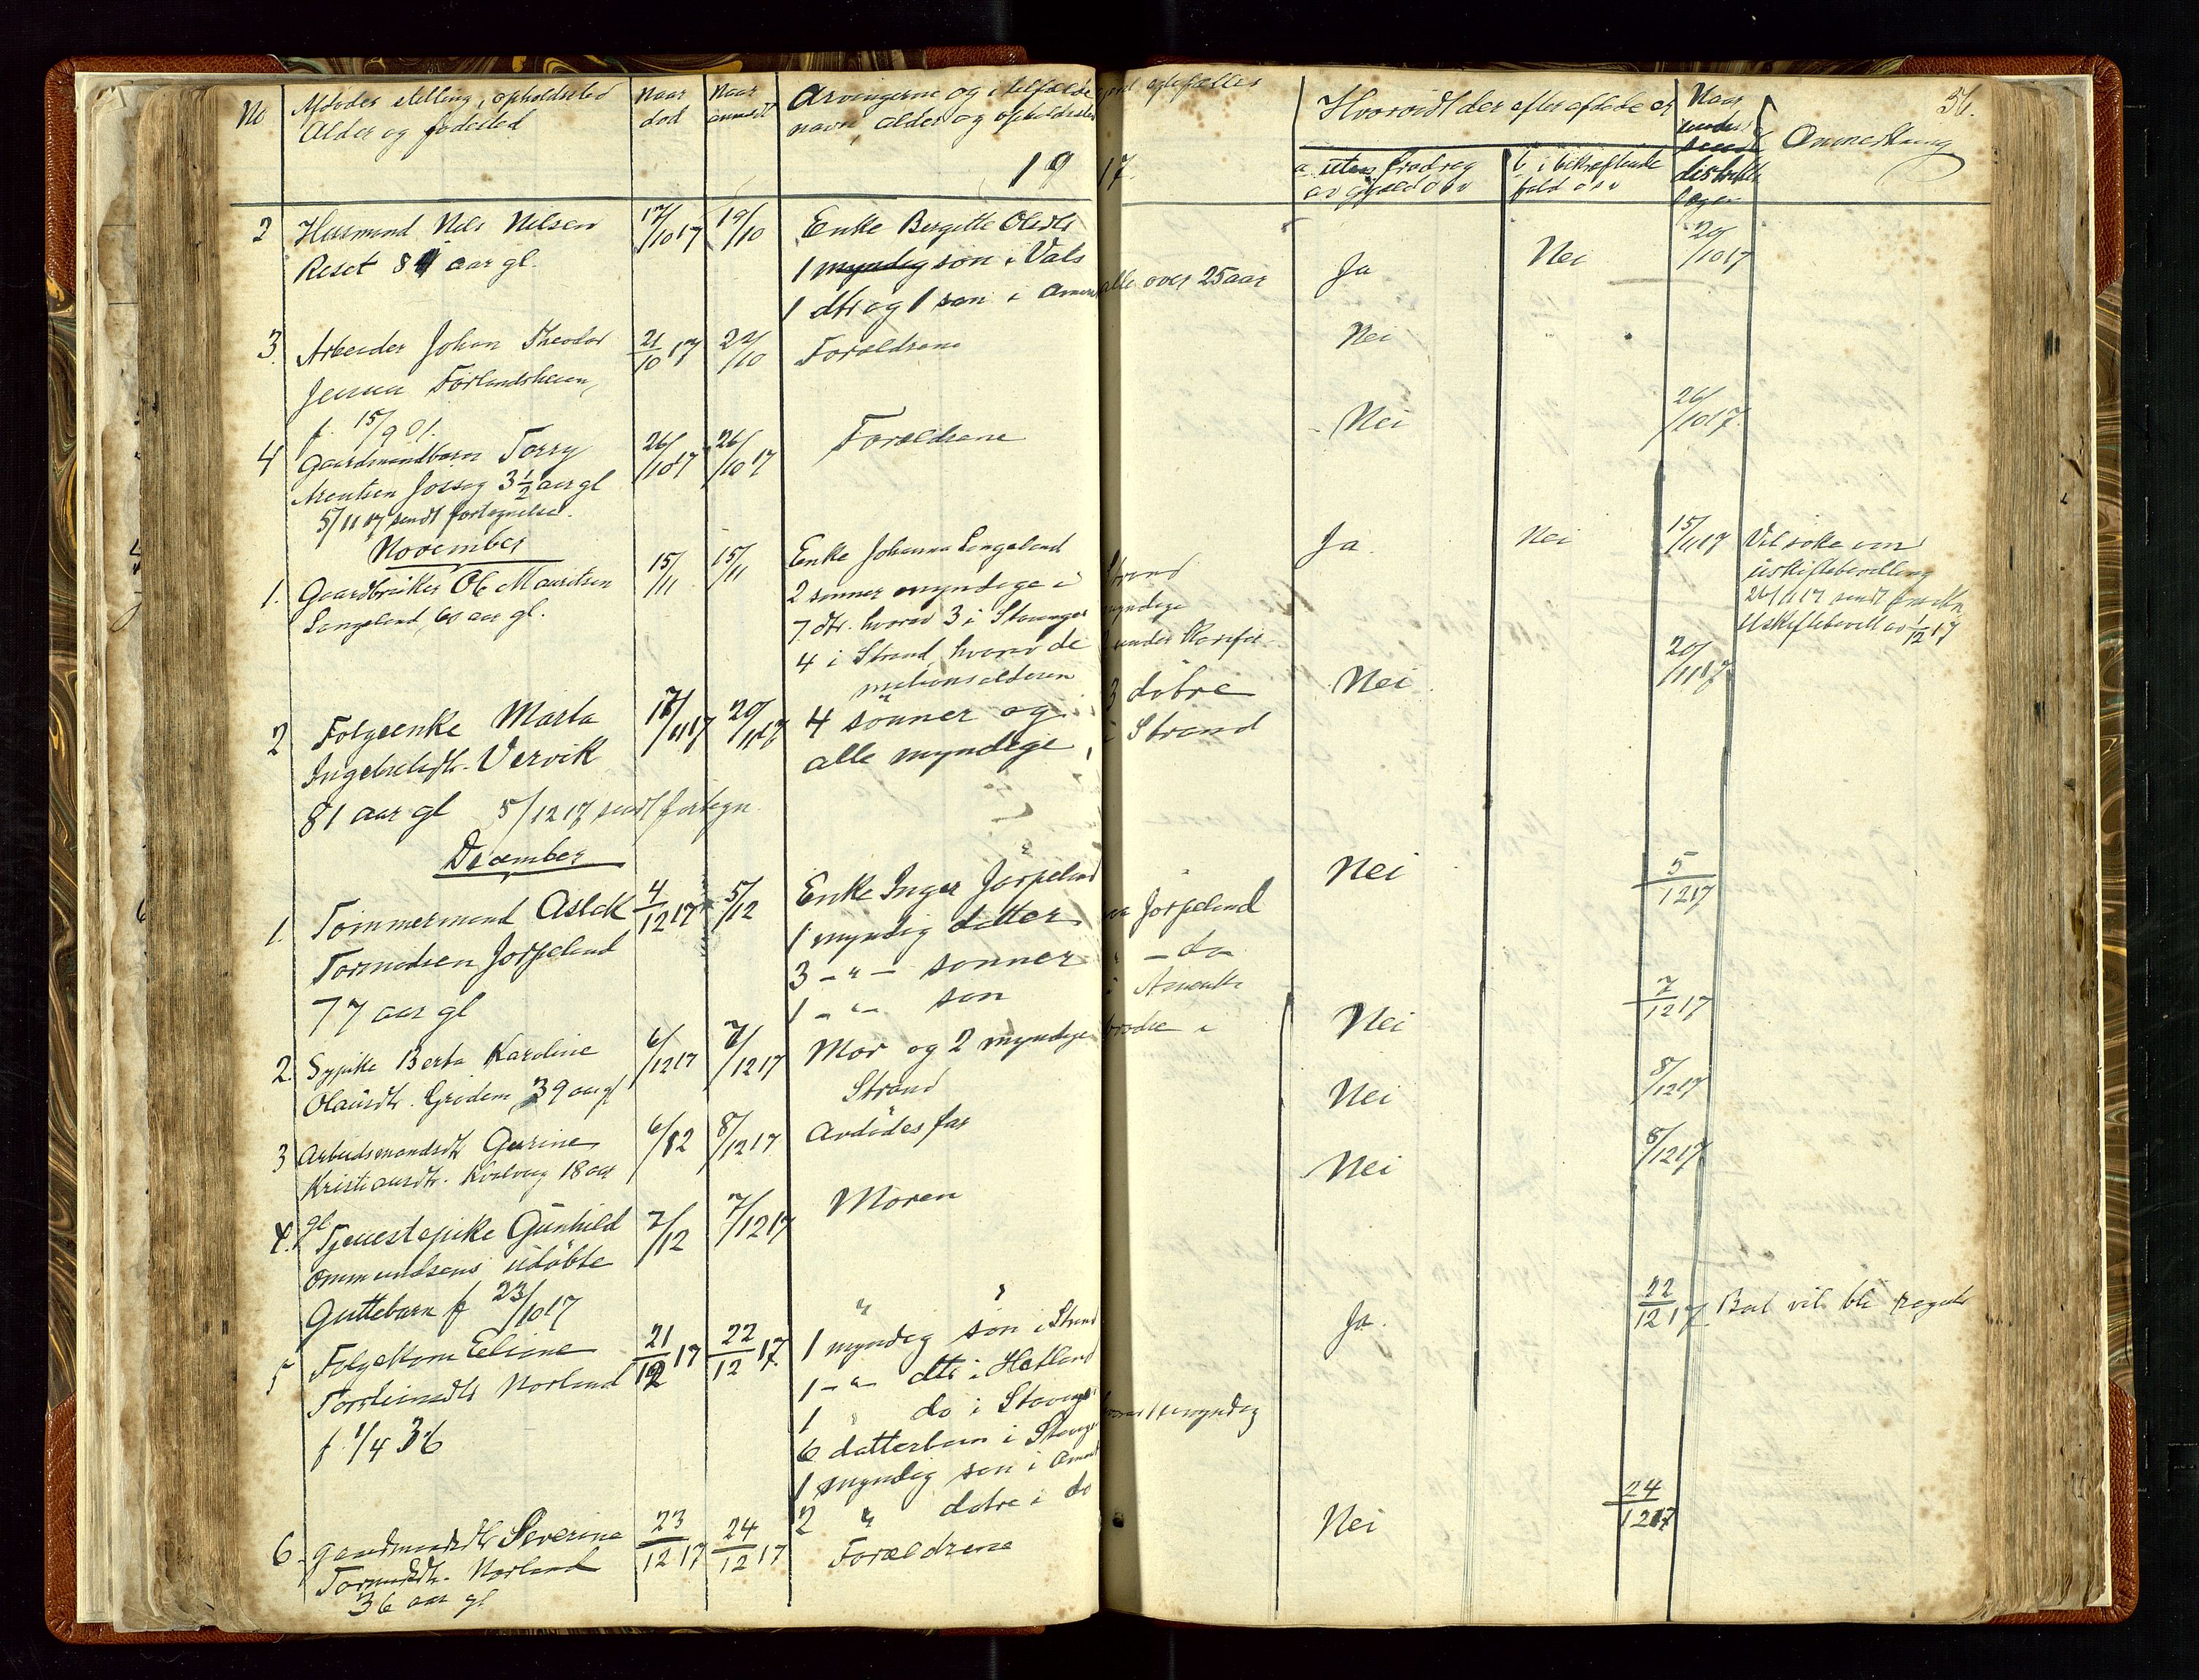 36.
No
Afdødes stilling, opholdssted
Alder og fødested
Naar
død
Naar
anmeldt
Arvingerne og i tilfælde
navn alder og opholdssted
Hvorvidt der efter afdøde er
a uten fradrag
av gjæld osv
b i bekræftende
fald osv
Naar
Anmerkning
1917.
2 Husmand Nils Nilsen
Reset 84 aar gl.
17/10 17
19/10
Enke Bergitte Olsdtr
1 myndig søn i Vats
1 dtr og 1 søn i Amerk alle over 25 aar
Ja
Nei
20/10 17
3. Arbeider Johan Theodor
Jensen
f. 15/9 01.
21/10 17
22/10
Forældrene
Nei
4 Gaardmandsbarn Torry
3 1/2 aar gl
5/11 17 sendt fortegnelse.
26/10 17
26/10 17
Forældrene
Nei
26/10 17.
November
1. Gaardbruker Ole Mauritsen
Langeland, 60 aar gl.
15/11
15/11
Enke Johanna Langeland
2 sønner myndige i Strand
7 dtr. hvorav 3 i Stavanger myndige
4 i Strand, hvorav de under konfir
mationsalderen
Ja.
Nei
15/11 17
Vil søke om
uskiftebevilling
26/11 17 sendt
Uskiftebevill av 1/12 17
2 Folgeenke Marta
Ingebretsdtr. Vervik
81 aar gl 5/12 17 sendt fortegn.
17/11 17
20/11 17
4 sønner og 3 døtre
alle myndige, i Strand
Nei
20/11 17
December
1. Tømmermand Aslak
Tormodsen Jørpeland
77 aar gl
4/12 17
5/12
Enke Inger Jørpeland
1 myndig datter paa Jørpeland
3 - " - sønner " - do
1 - " - søn i Amerika
Nei
5/12 17
2. Sypike Berta Karoline
Olausdtr. Grødem 39 aar gl
6/12 17
7/12 17
Mor og 2 myndige brødre i
Strand
Nei
7/12 17
3 Arbeidsmandsdtr Gurine
Kristiansdtr. 18 aar
gl
6/12
8/12 17
Avdødes far
Nei
8/12 17
4. Tjenestepike Gunhild
Ommundsens udøbte
Guttebarn f 23/10 17
7/12
7/12 17
Moren
Nei
8/12 17
5 Folgekone Eliane
Torsteinsdtr Norland
f. 1/4 36
21/12 17
22/12 17.
1 myndig søn i Strand
1 - " - dtr i Hetland
1 " do i Stavanger
6 datterbarn i Stavanger hvorav 1 umyndig
1 myndig søn i Amerk
2 " døtre i do
Ja.
22/12 17.
Boet vil bli
6. Gaardmandsdtr Severine
Tormodsdtr. Norland
36 aar gl
23/12 17
24/12 17
Forældrene
Nei
24/12 17